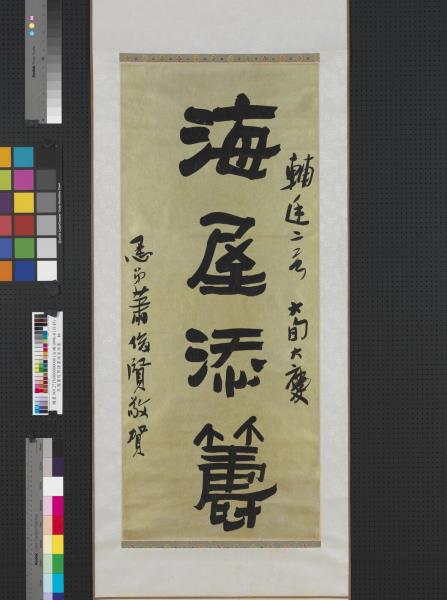 輔廷二兄 六旬大慶
海屋添籌
愚弟蕭俊賢敬賀